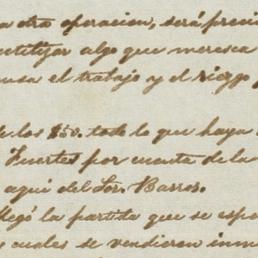 a otra operacion, será preci
utilizar algo que meresca
usa el trabajo y el riezgo
de los 250. todo lo que haya
Fuertes por cuenta de la
aqui del Sor. Barros.
llegó la partida que se espe
s cuales se vendieron inm